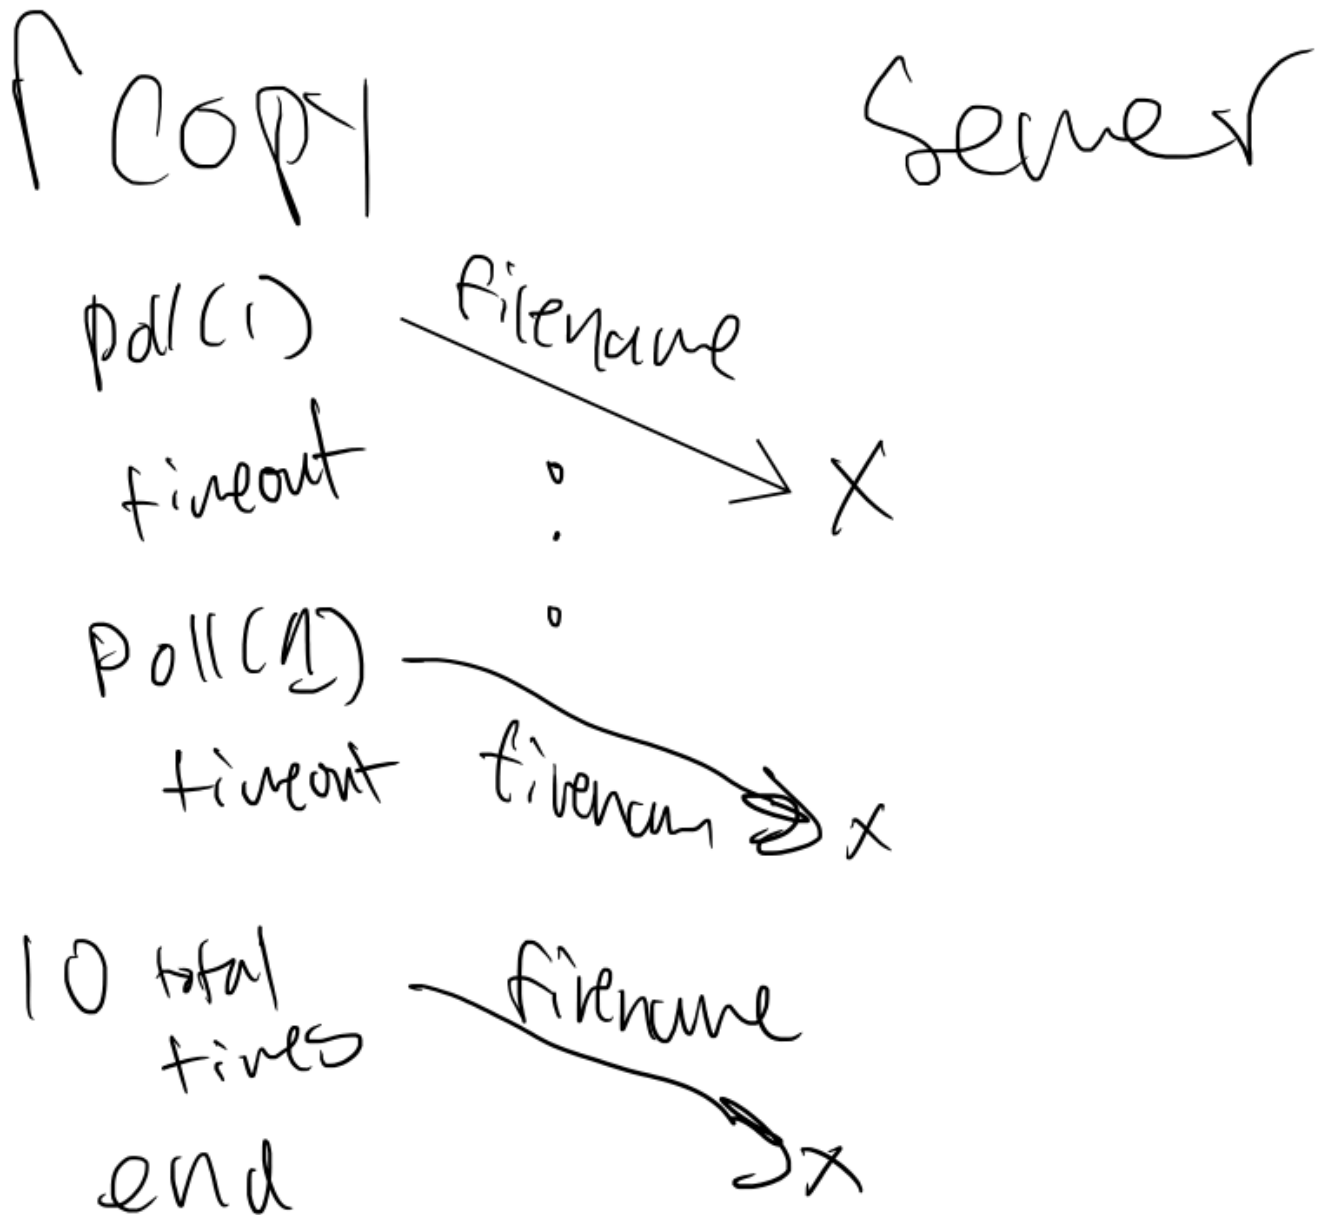 rcopy
Server
poll(1)
filename
timeout
X
poll(1)
timeout
filenam
x
10 total
times
filename
x
end